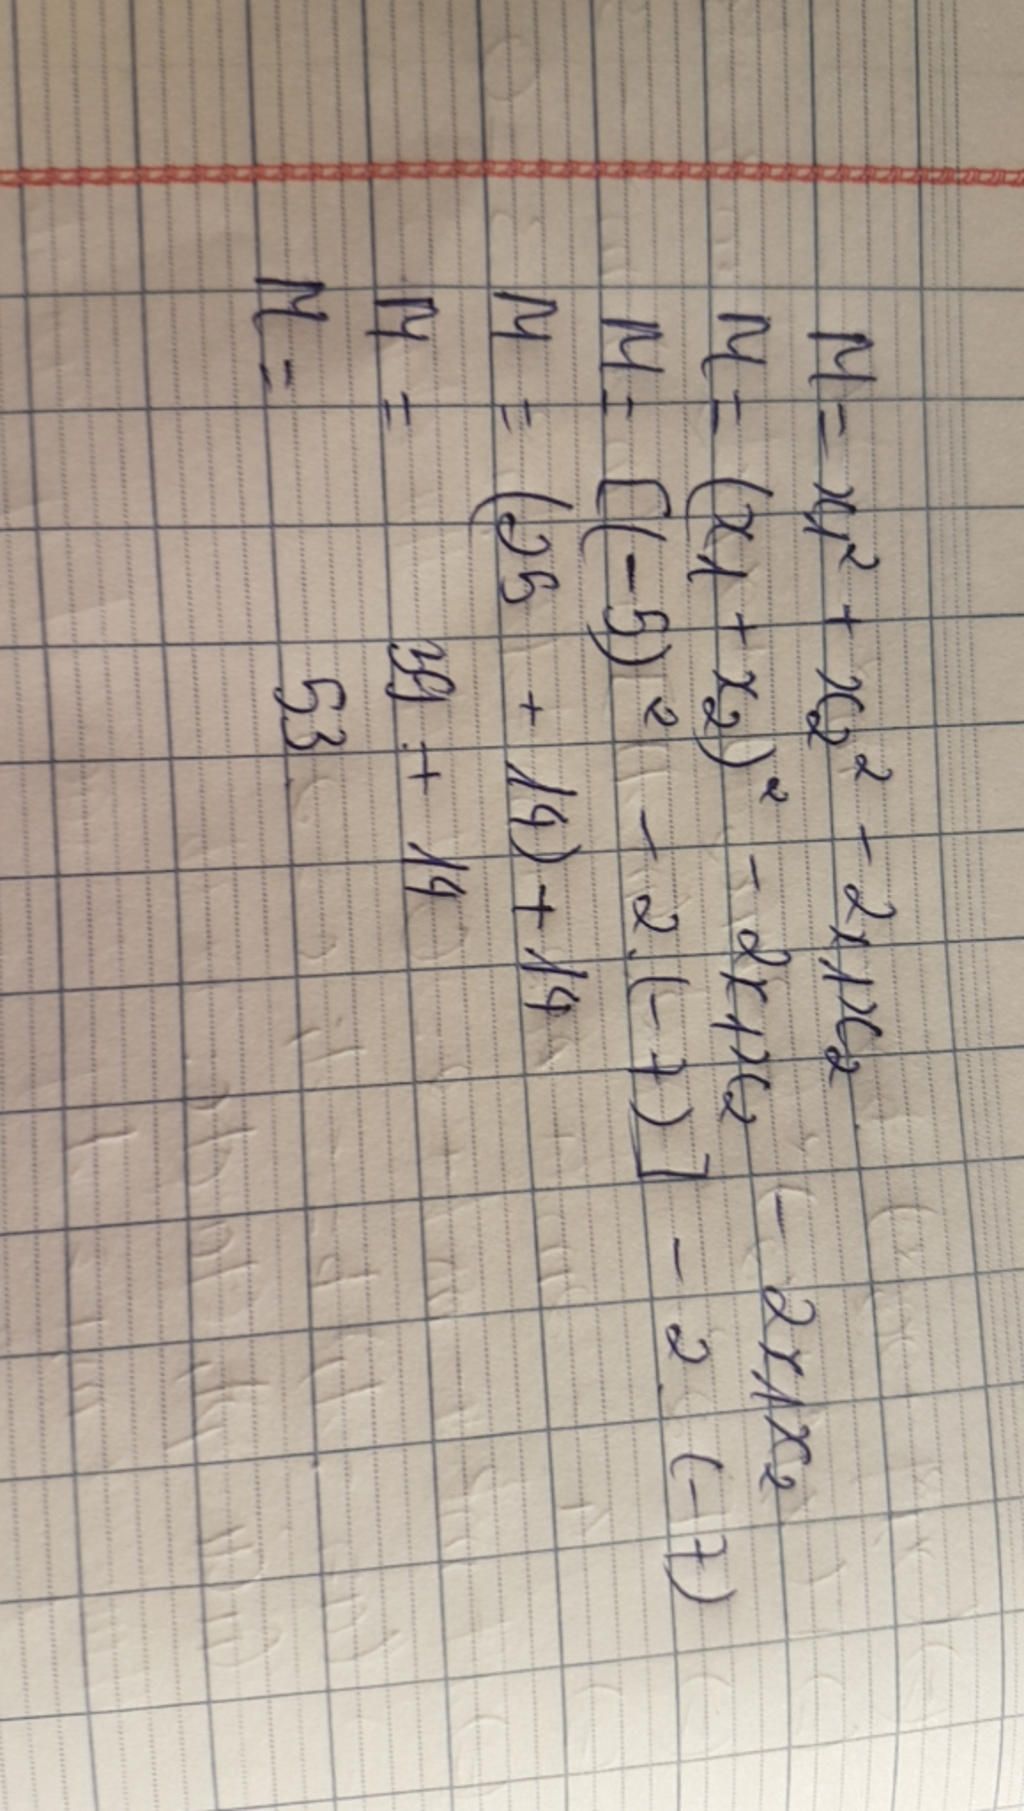 M = x₁² + x₂² - 2x₁x₂
M = (x₁ + x₂)² - 2x₁x₂ - 2x₁x₂
M = [(-5)² - 2.(-7)] - 2.(-7)
M = (25 + 14) + 14
M = 39 + 14
M = 53